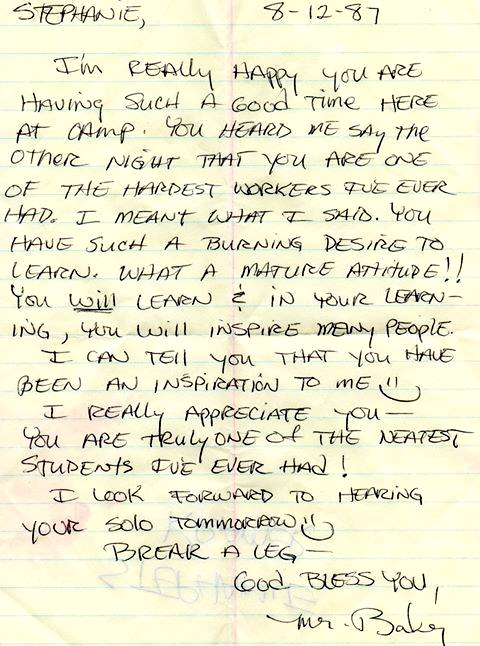 STEPHANIE, 8-12-87
I'm REALLY HAPPY YOU ARE
HAVING SUCH A GOOD TIME HERE
AT CAMP. YOU HEARD ME SAY THE
OTHER NIGHT THAT YOU ARE ONE
OF THE HARDEST WORKERS I'VE EVER
HAD. I MEANT WHAT I SAID. YOU
HAVE SUCH A BURNING DESIRE TO
LEARN. WHAT A MATURE ATTITUDE!!
YOU WILL LEARN & IN YOUR LEARN-
ING, YOU WILL INSPIRE MANY PEOPLE.
I CAN TELL YOU THAT YOU HAVE
BEEN AN INSPIRATION TO ME
I REALLY APPRECIATE YOU—
YOU ARE TRULY ONE OF THE NEATEST
STUDENTS I'VE EVER HAD!
I LOOK FORWARD TO HEARING
YOUR SOLO TOMMORROW
BREAK A LEG—
GOD BLESS YOU,
Mr. Baker